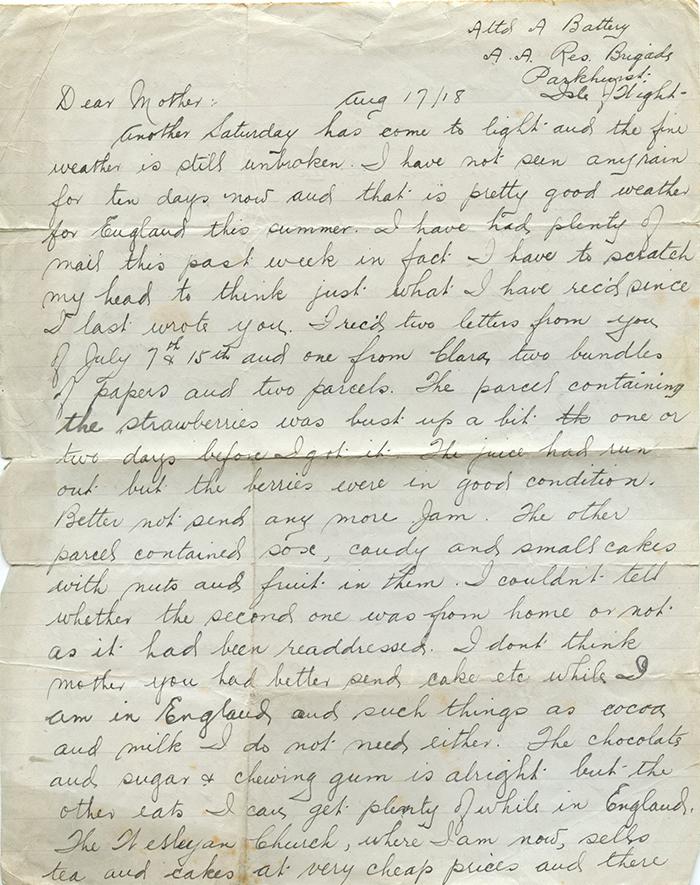 Attd A Battery
A.A. Res. Brigade
Parkhurst.
Isle of Wight-
Dear Mother:- Aug 17/18
Another Saturday has come to light and the fine
weather is still unbroken. I have not seen any rain
for ten days now and that is pretty good weather
for England this summer. I have had plenty of
mail this past week in fact I have to scratch
my head to think just what I have rec'd since
I last wrote you. I rec'd two letters from you
of July 7th & 15th and one from Clara, two bundles
of papers and two parcels. The parcel containing
the strawberries was bust up a bit th one or
two days before I got it. The juice had run
out but the berries were in good condition.
Better not send any more Jam. The other
parcel contained sox, candy and small cakes
with nuts and fruit in them. I couldn't tell
whether the second one was from home or not
as it had been readdressed. I dont think
mother you had better send cake etc while I
am in England and such things as cocoa
and milk I do not need either. The chocolate
and sugar & chewing gum is alright but the
other eats I can get plenty of while in England.
The Wesleyan Church, where I am now, sells
tea and cakes at very cheap prices and there